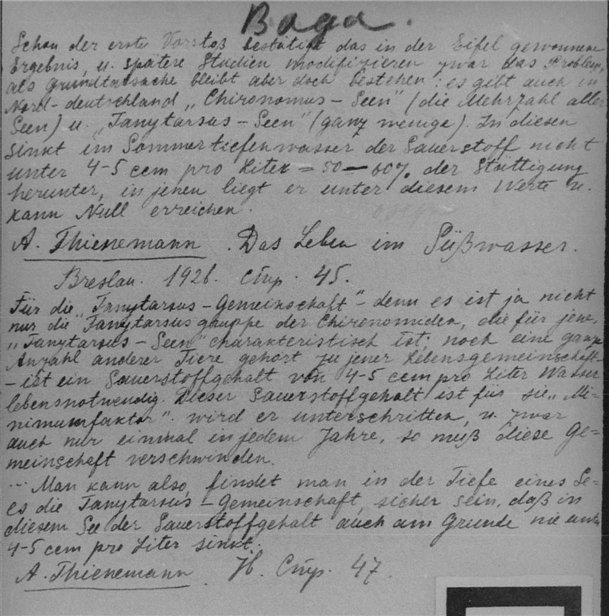 Вода.
Schon der erste Vorstoß bestätigt das in der Eifel gewonnene
Ergebnis, u. spätere Studien modifizieren zwar das Problem,
als Grundtatsache bleibt aber doch bestehen: es gibt auch in
Nord-deutschland „Chironomus-Seen" (die Mehrzahl aller
Seen) u. „Tanytarsus-Seen" (ganz wenige). In diesen
sinkt im Sommertiefenwasser der Sauerstoff nicht
unter 4-5 ccm pro Liter = 50-60% der Sättigung
herunter, in jenen liegt er unter diesem Werte u.
kann Null erreichen.
A. Thienemann. Das Leben im Süßwasser.
Breslau. 1926. Стр. 45.
Für die „Tanytarsus-Gemeinschaft" - denn es ist ja nicht
nur die Tanytarsusgruppe der Chironomiden, die für jene
„Tanytarsus-Seen" charakteristisch ist; noch eine ganze
Anzahl anderer Tiere gehört zu jener Lebensgemeinschaft
- ist ein Sauerstoffgehalt von 4-5 ccm pro Liter Wasser
lebensnotwendig. Dieser Sauerstoffgehalt ist für sie „Mi-
nimumfaktor". wird er unterschritten, u. zwar
auch nur einmal in jedem Jahre, so muß diese Ge-
meinschaft verschwinden.
... Man kann also, findet man in der Tiefe eines Se-
es die Tanytarsus-Gemeinschaft, sicher sein, daß in
diesem See der Sauerstoffgehalt auch am Grunde nie unter
4-5 ccm pro Liter sinkt.
A. Thienemann Ib. Стр. 47.